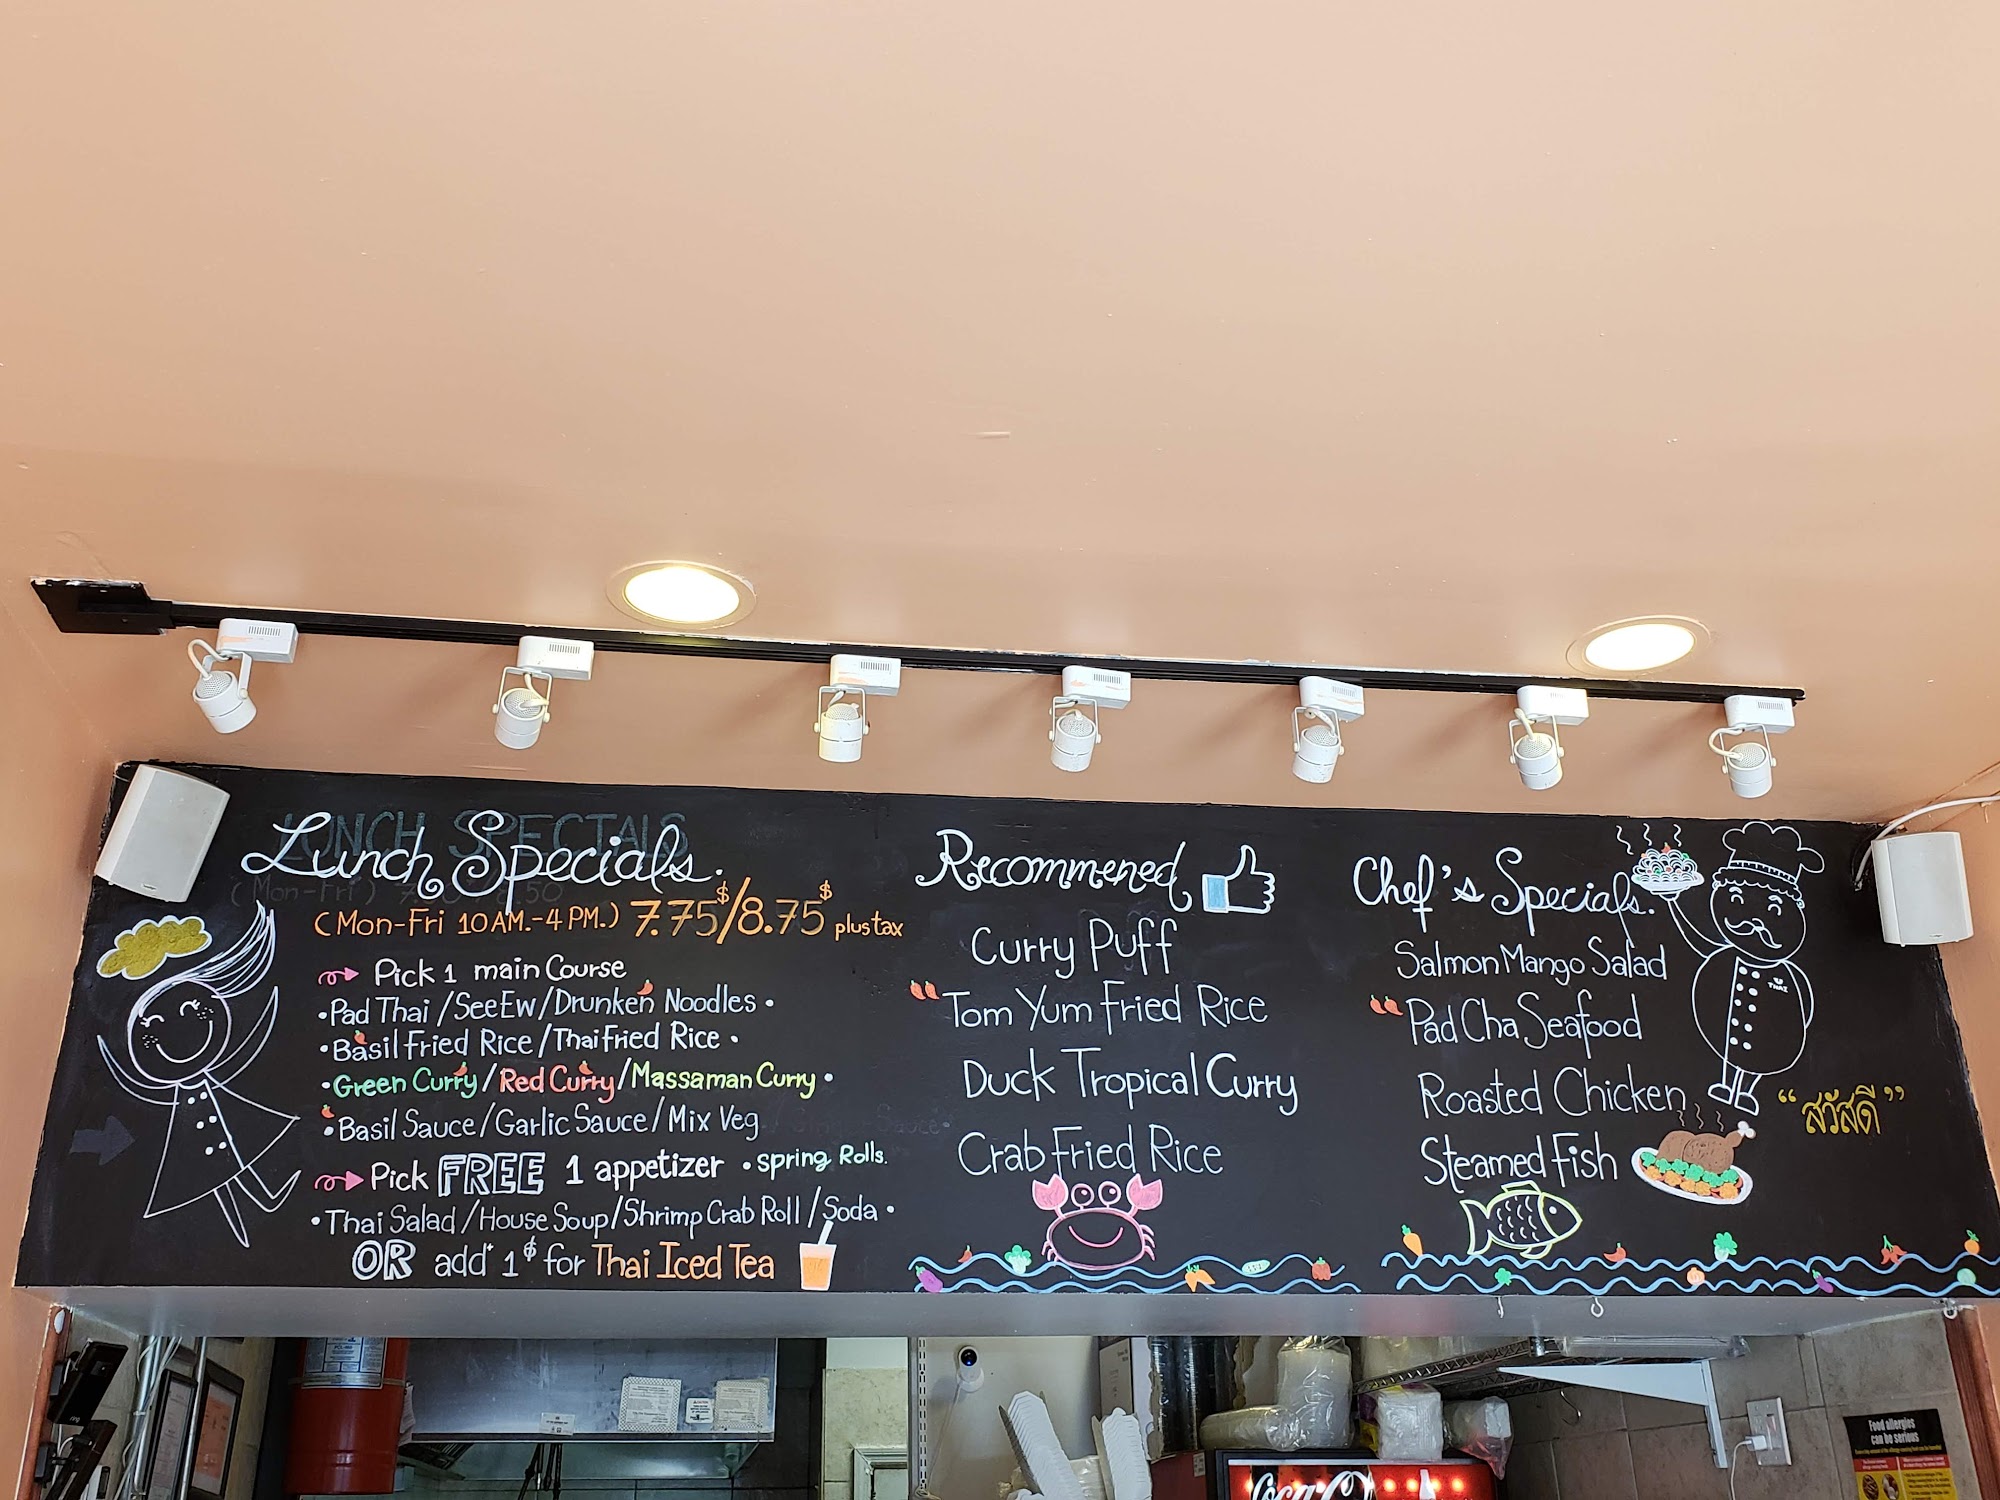 Lunch Specials.
(Mon-Fri 10 AM.-4 PM.) 7.75$/8.75$ plus tax
Pick 1 main Course
•Pad Thai/SeeEw/Drunken Noodles•
•Basil Fried Rice/Thai Fried Rice•
•Green Curry/Red Curry/Massaman Curry•
•Basil Sauce/Garlic Sauce/Mix Veg
Pick FREE 1 appetizer •spring Rolls.
•Thai Salad/House Soup/Shrimp Crab Roll/Soda•
OR add+ 1$ for Thai Iced Tea
LUNCH SPECIALS
(Mon-Fri)
Recommened
Curry Puff
Tom Yum Fried Rice
Duck Tropical Curry
Crab Fried Rice
Chef's Specials.
Salmon Mango Salad
Pad Cha Seafood
Roasted Chicken
Steamed Fish
THAI
“สวัสดี”
Coca-Co
Food allergies
can be serious
ring